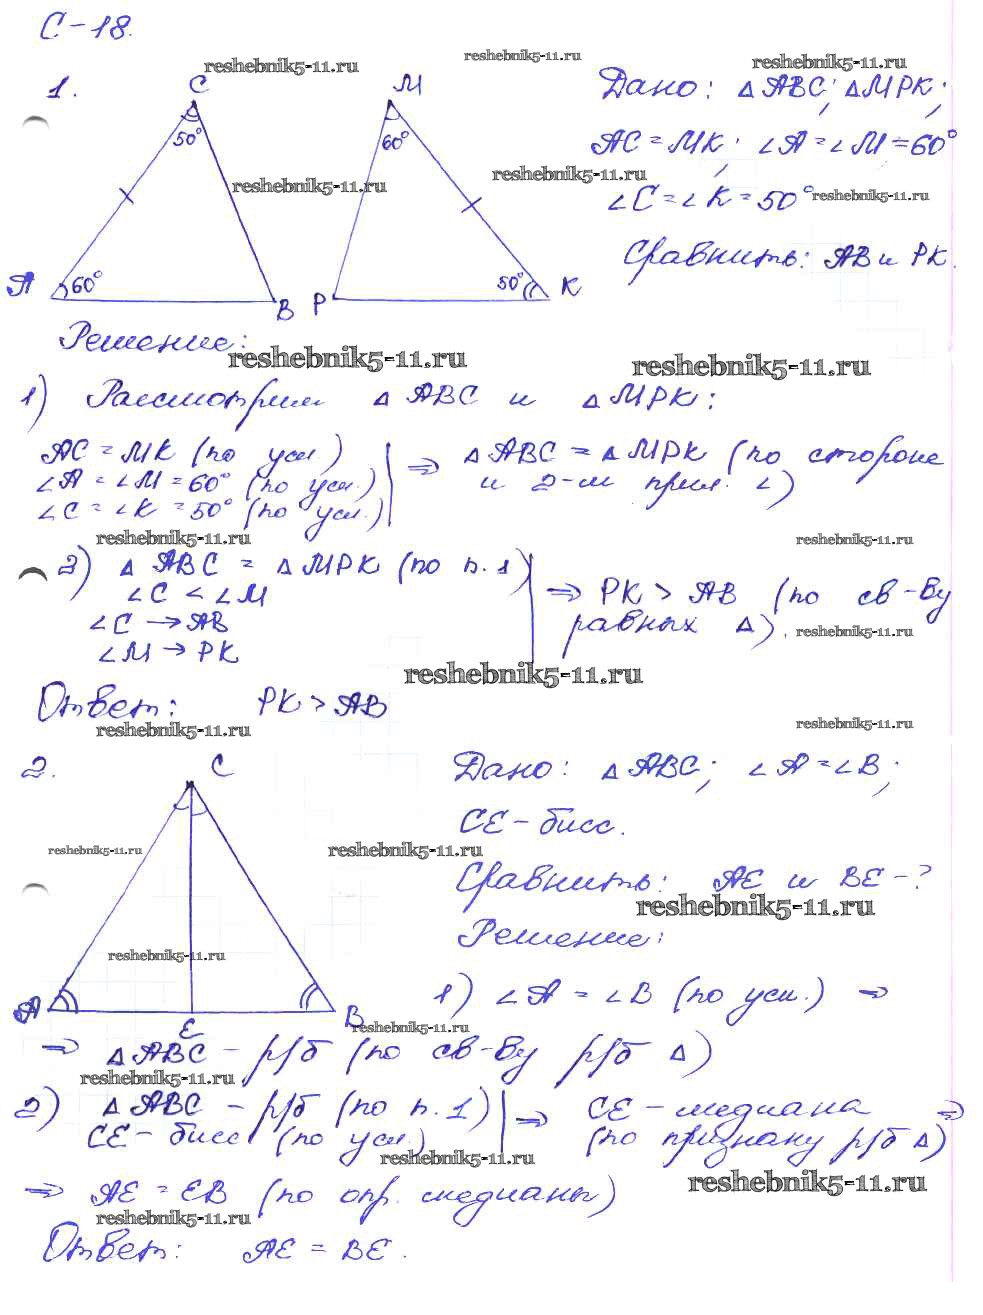 С-18.
reshebnik5-11.ru
reshebnik5-11.ru
reshebnik5-11.ru
1.
C
50°
A
60°
B
M
60°
P
50°
K
reshebnik5-11.ru
reshebnik5-11.ru
reshebnik5-11.ru
Дано: △ABC; △MPK;
AC = MK; ∠A = ∠M = 60°
∠C = ∠K = 50°
Сравнить: AB и PK.
Решение:
reshebnik5-11.ru
reshebnik5-11.ru
1) Рассмотрим △ABC и △MPK:
AC = MK (по усл)
∠A = ∠M = 60° (по усл.)
∠C = ∠K = 50° (по усл.)
⇒ △ABC = △MPK (по стороне
и 2-м прил. ∠)
reshebnik5-11.ru
reshebnik5-11.ru
2) △ABC = △MPK (по п.1)
∠C < ∠M
∠C → AB
∠M → PK
⇒ PK > AB (по св-ву
равных △).
reshebnik5-11.ru
reshebnik5-11.ru
Ответ: PK > AB
reshebnik5-11.ru
reshebnik5-11.ru
2.
C
A
E
B
Дано: △ABC; ∠A = ∠B;
CE - бисс.
reshebnik5-11.ru
reshebnik5-11.ru
Сравнить: AE и BE - ?
reshebnik5-11.ru
Решение:
reshebnik5-11.ru
1) ∠A = ∠B (по усл.) ⇒
reshebnik5-11.ru
⇒ △ABC - р/б (по св-ву р/б △)
reshebnik5-11.ru
2) △ABC - р/б (по п.1)
CE - бисс (по усл.)
⇒ CE - медиана ⇒
(по признаку р/б △)
reshebnik5-11.ru
reshebnik5-11.ru
⇒ AE = EB (по опр. медианы)
reshebnik5-11.ru
Ответ: AE = BE.